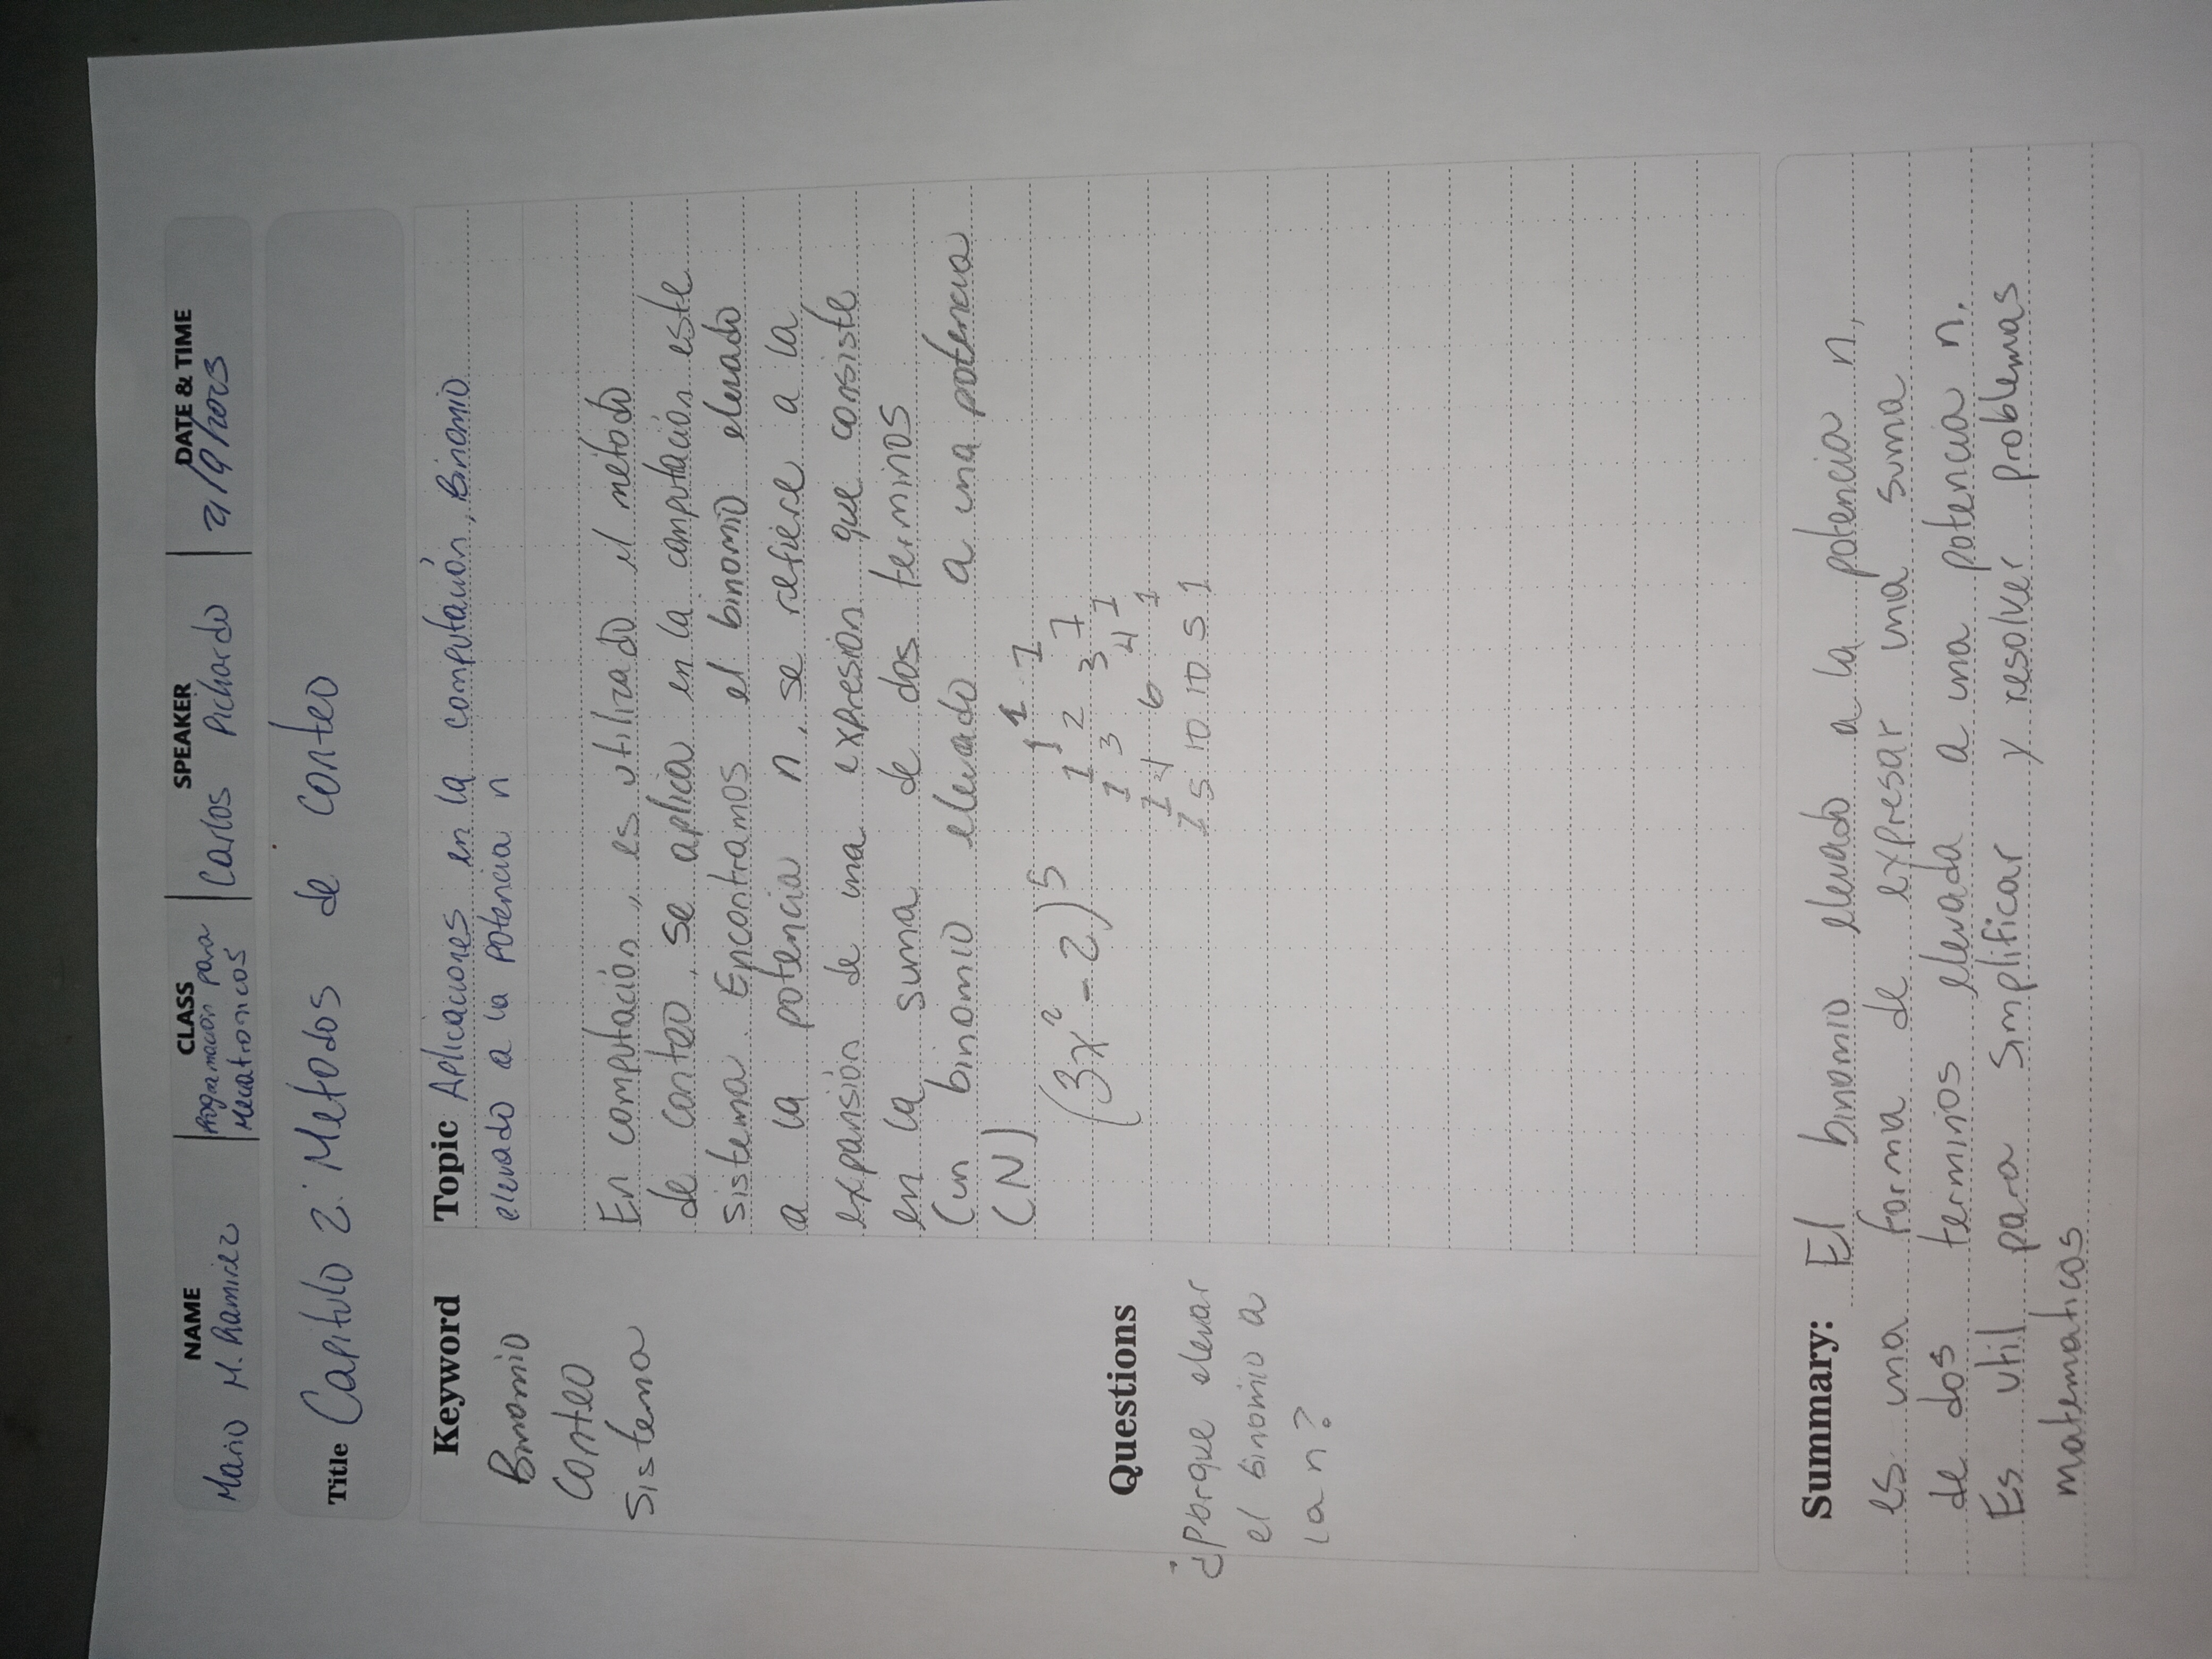 NAME CLASS SPEAKER DATE & TIME
Mario M. Ramirez
Programación para
Mecatronicos
Carlos Pichardo
21/9/2023
Title Capitulo 2: Metodos de conteo
Keyword
Binomio
Conteo
Sistema
Topic Aplicaciones en la computación, Binomio
elevado a la potencia n
En computación, es utilizado el método
de conteo, se aplica en la computación este
sistema. Encontramos el binomio elevado
a la potencia n, se refiere a la
expansión de una expresión que consiste
en la suma de dos terminos
(un binomio elevado a una potencia
(N)
(3x² - 2)⁵
1
1 1
1 2 1
1 3 3 1
1 4 6 4 1
1 5 10 10 5 1
Questions
¿Porque elevar
el binomio a
la n?
Summary: El binomio elevado a la potencia n,
es una forma de expresar una suma
de dos terminos elevada a una potencia n.
Es util para simplificar y resolver problemas
matematicos